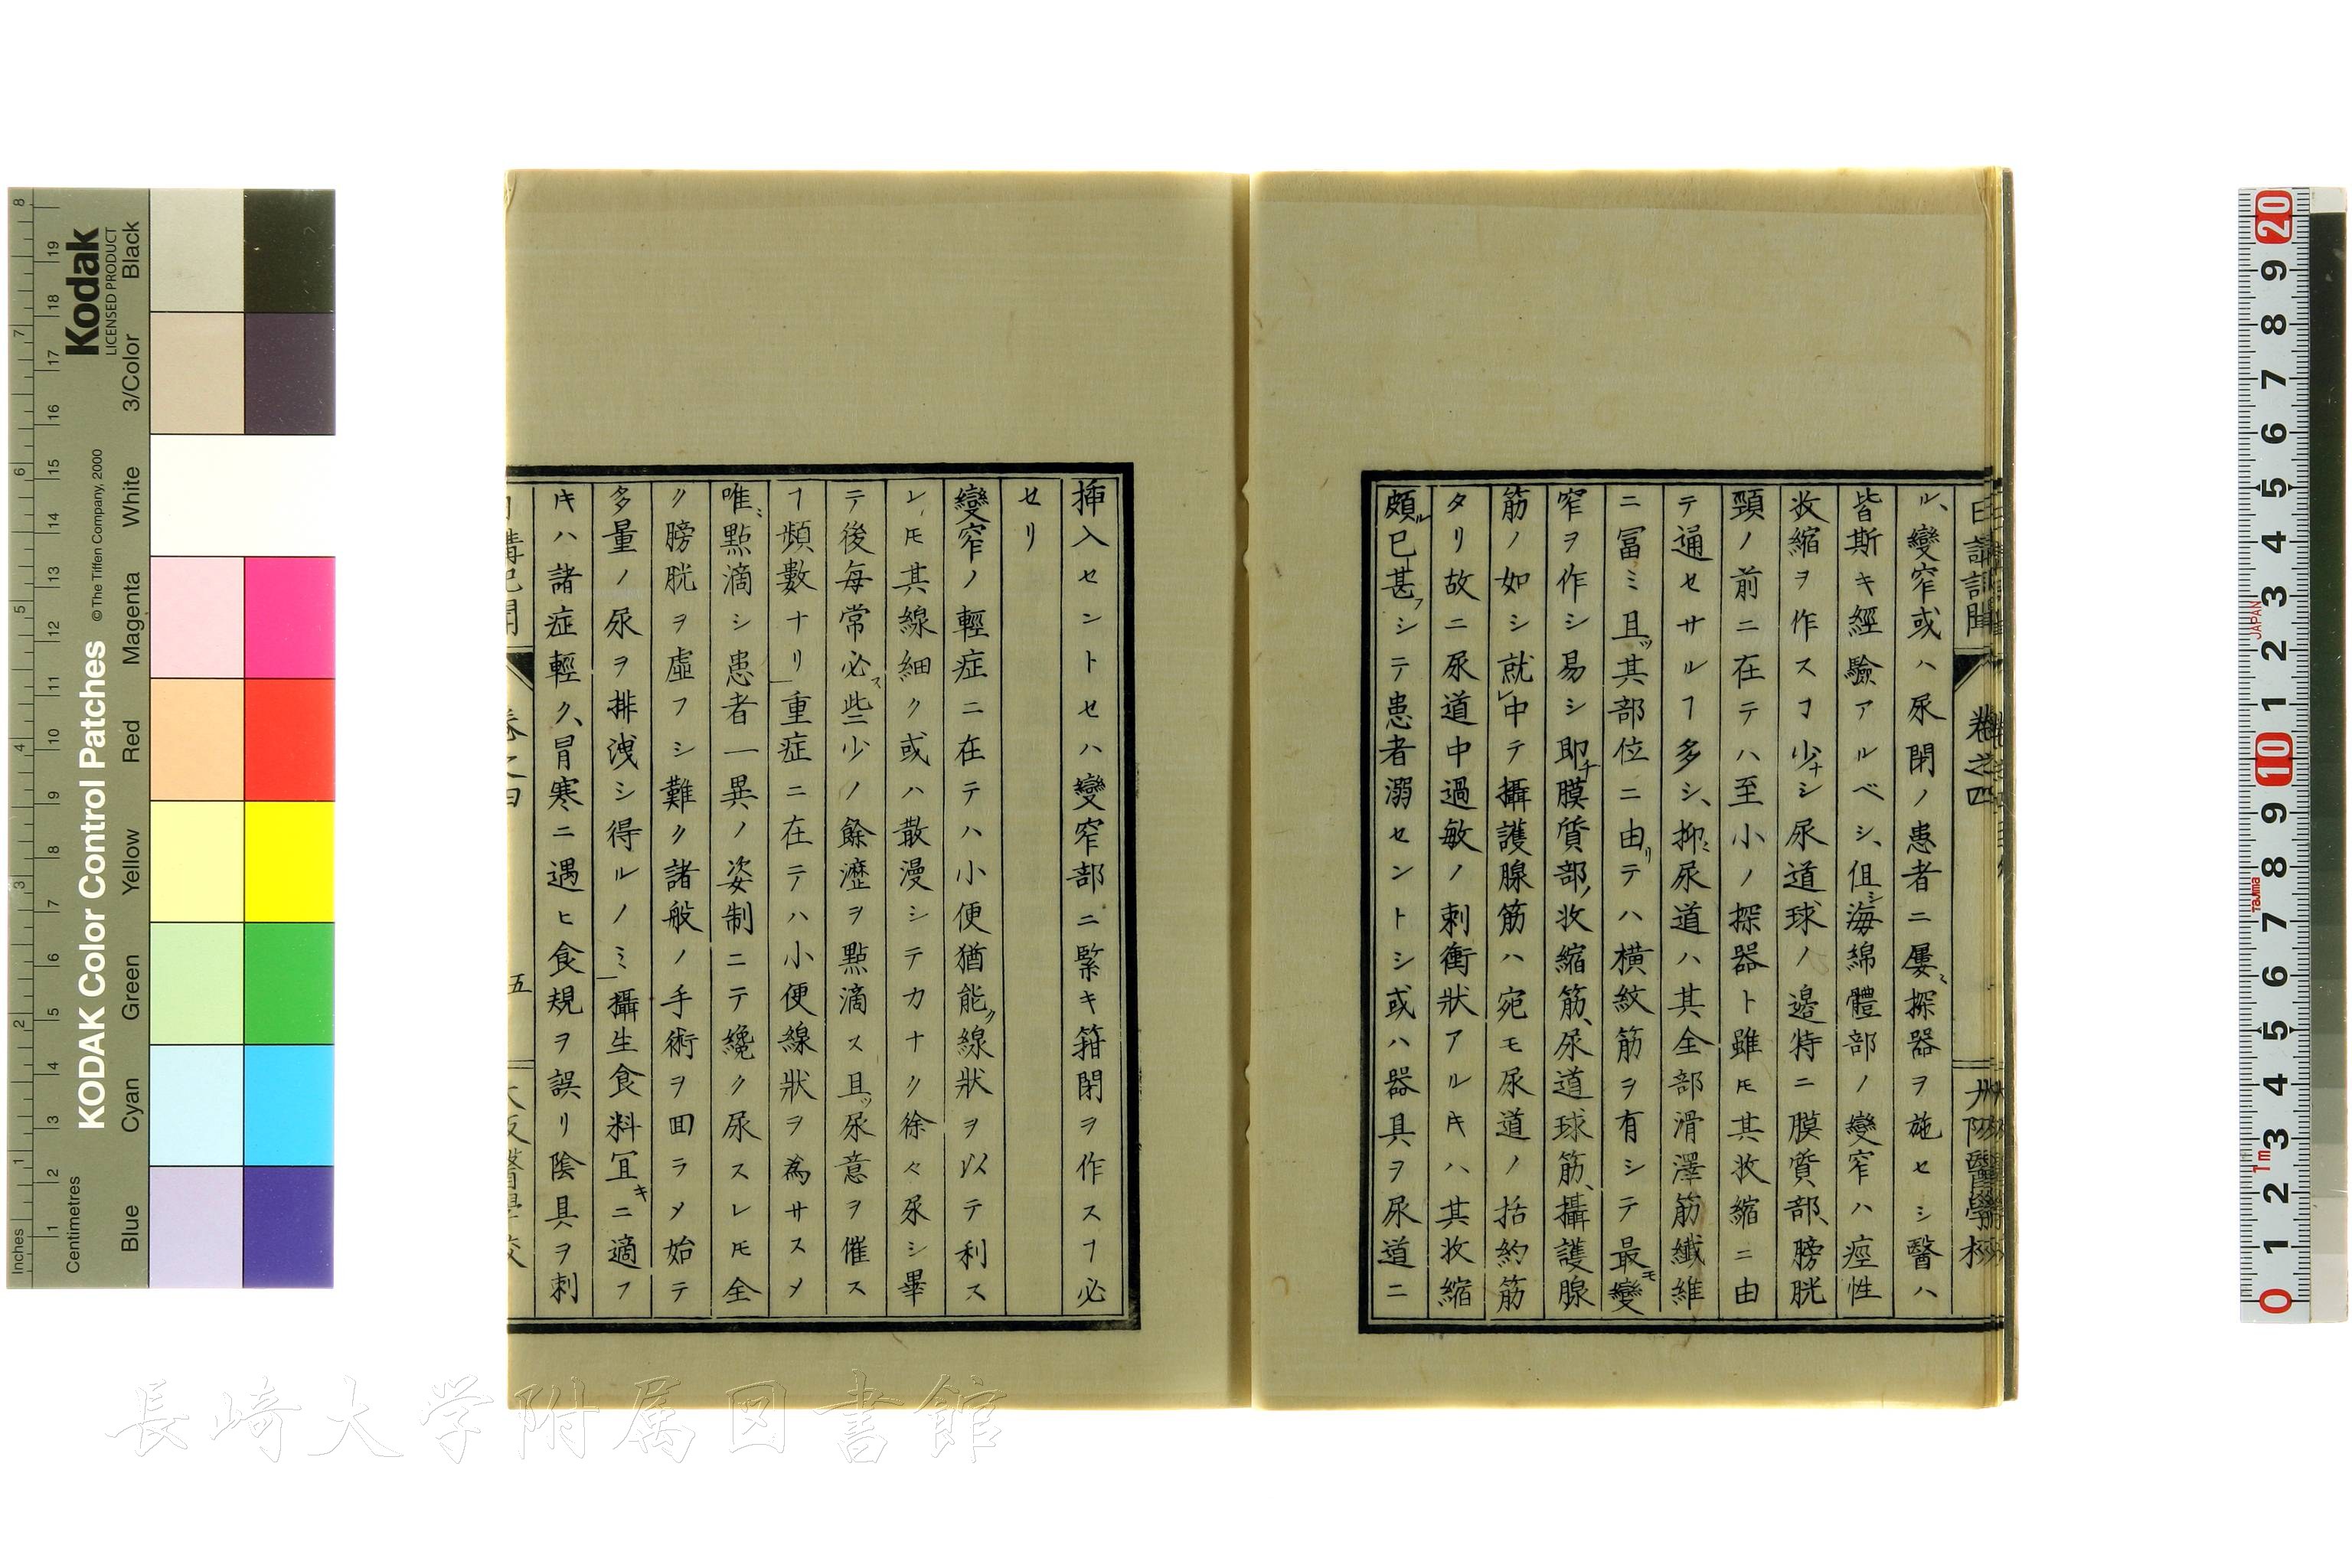 日講記聞 卷之四 大阪醫學校
ル、變窄或ハ尿閉ノ患者ニ屢〻探器ヲ施セシ醫ハ
皆斯キ經驗アルベシ、伹シ海綿體部ノ變窄ハ痙性
收縮ヲ作スヿ少ナシ尿道球ノ邉特ニ膜質部、膀胱
頸ノ前ニ在テハ至小ノ探器ト雖𪜈其收縮ニ由
テ通セサルヿ多シ、抑〻尿道ハ其全部滑澤筋纎維
ニ冨ミ且ツ其部位ニ由リテハ橫紋筋ヲ有シテ最モ變
窄ヲ作シ易シ即チ膜質部ノ收縮筋、尿道球筋、攝護腺
筋ノ如シ就レ中テ攝護腺筋ハ宛モ尿道ノ括約筋
タリ故ニ尿道中過敏ノ刺衝狀アルキハ其收縮
頗ル已甚フシテ患者溺セントシ或ハ器具ヲ尿道ニ
挿入セントセハ變窄部ニ緊キ箝閉ヲ作スヿ必
セリ
變窄ノ輕症ニ在テハ小便猶能ク線狀ヲ以テ利ス
レ𪜈其線細ク或ハ散漫シテカナク徐々尿シ畢
テ後每常必ス些少ノ餘瀝ヲ點滴ス且ツ尿意ヲ催ス
ヿ頻數ナリ重症ニ在テハ小便線狀ヲ為サスメ
唯〻點滴シ患者一異ノ姿制ニテ纔ク尿スレ𪜈全
ク膀胱ヲ虛フシ難ク諸般ノ手術ヲ囬ラメ始テ
多量ノ尿ヲ排洩シ得ルノミ攝生食料冝キニ適フ
キハ諸症輕ク、冐寒ニ遇ヒ食規ヲ誤リ陰具ヲ刺
日講記聞 卷之四 五 大阪醫學校
KODAK Color Control Patches
© The Tiffen Company, 2000
Kodak
LICENSED PRODUCT
Inches 1 2 3 4 5 6 7 8
Centimetres 1 2 3 4 5 6 7 8 9 10 11 12 13 14 15 16 17 18 19
Blue Cyan Green Yellow Red Magenta White 3/Color Black
0 1 2 3 4 5 6 7 8 9 10 1 2 3 4 5 6 7 8 9 20
1m Tajima JAPAN
長崎大学附属図書館